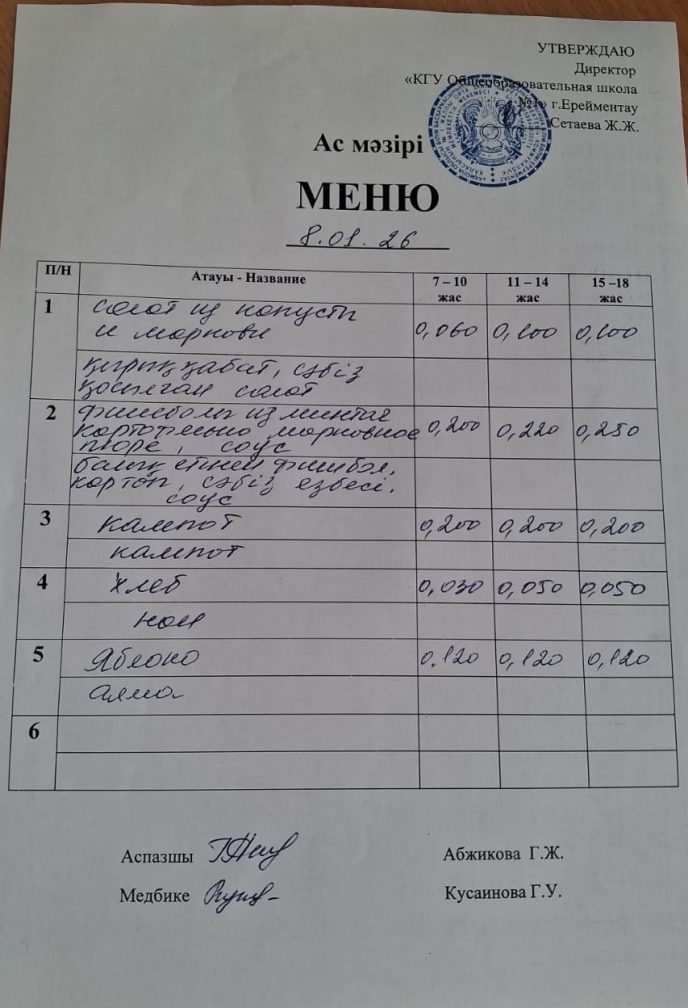 УТВЕРЖДАЮ
Директор
«КГУ Общеобразовательная школа
г.Ерейментау
Сетаева Ж.Ж.
Ас мәзірі
МЕНЮ
8.01.26
П/Н Атауы - Название 7 – 10 жас 11 – 14 жас 15 –18 жас
1 салат из капусты
и моркови 0,060 0,100 0,100
қырыққабат, сәбіз
қосылған салат
2 фишболы из минтая
картофельно морковное 0,200 0,220 0,250
пюре, соус
балық етінен фишбол,
картоп, сәбіз езбесі,
соус
3 кампот 0,200 0,200 0,200
кампот
4 хлеб 0,030 0,050 0,050
нан
5 Яблоко 0,120 0,120 0,120
алма
6
Аспазшы Абжикова Г.Ж.
Медбике Кусаинова Г.У.